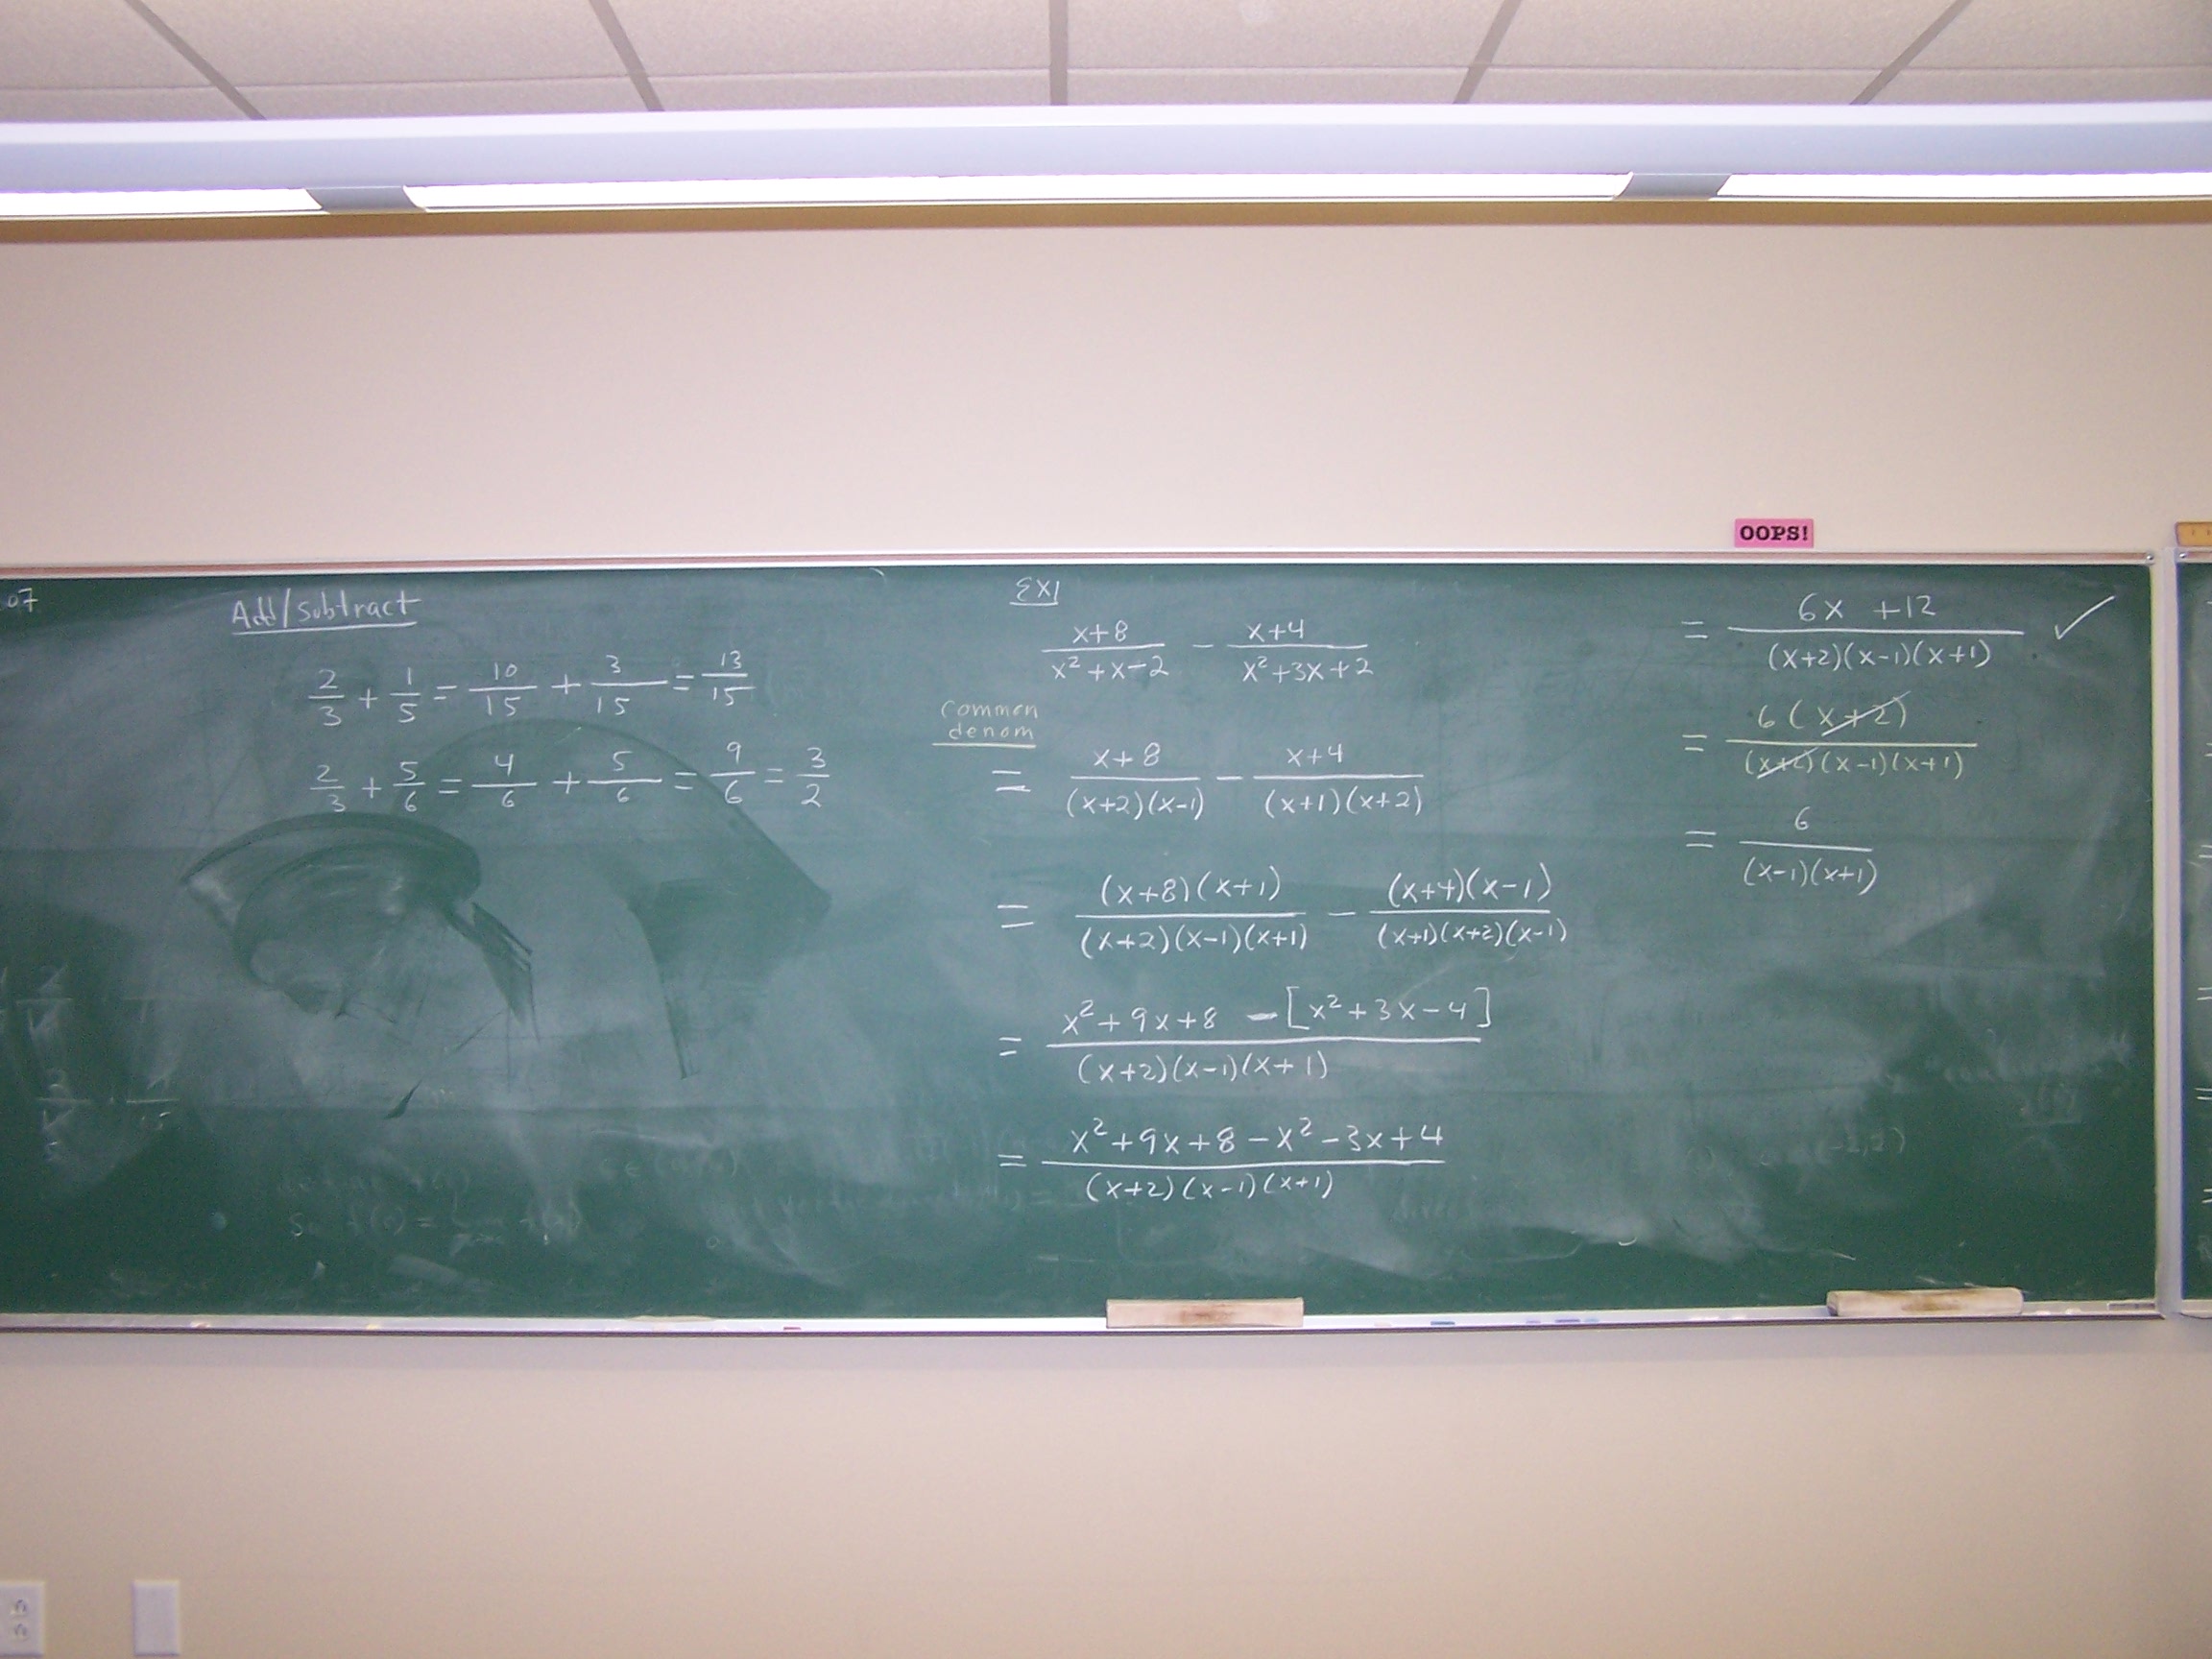 OOPS!
07
Add/subtract
2/3 + 1/5 = 10/15 + 3/15 = 13/15
2/3 + 5/6 = 4/6 + 5/6 = 9/6 = 3/2
EX1
(x+8)/(x²+x-2) - (x+4)/(x²+3x+2)
common
denom
= (x+8)/((x+2)(x-1)) - (x+4)/((x+1)(x+2))
= ((x+8)(x+1))/((x+2)(x-1)(x+1)) - ((x+4)(x-1))/((x+1)(x+2)(x-1))
= (x²+9x+8 - [x²+3x-4])/((x+2)(x-1)(x+1))
= (x²+9x+8-x²-3x+4)/((x+2)(x-1)(x+1))
= (6x +12)/((x+2)(x-1)(x+1)) ✓
= (6(x+2))/((x+2)(x-1)(x+1))
= 6/((x-1)(x+1))